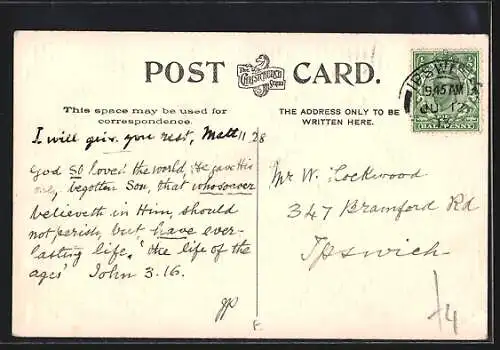 POST CARD.
The
Christchurch
Series
This space may be used for
correspondence.
THE ADDRESS ONLY TO BE
WRITTEN HERE.
IPSWICH
9.45 AM
HALFPENNY
I will give you rest, Matt 11 28
God so loved the world, He gave His
only begotten Son, that whosoever
believeth in Him, should
not perish, but have ever-
lasting life," the life of the
ages' John 3.16.
Mr W. Lockwood
347 Bramford Rd
Ipswich